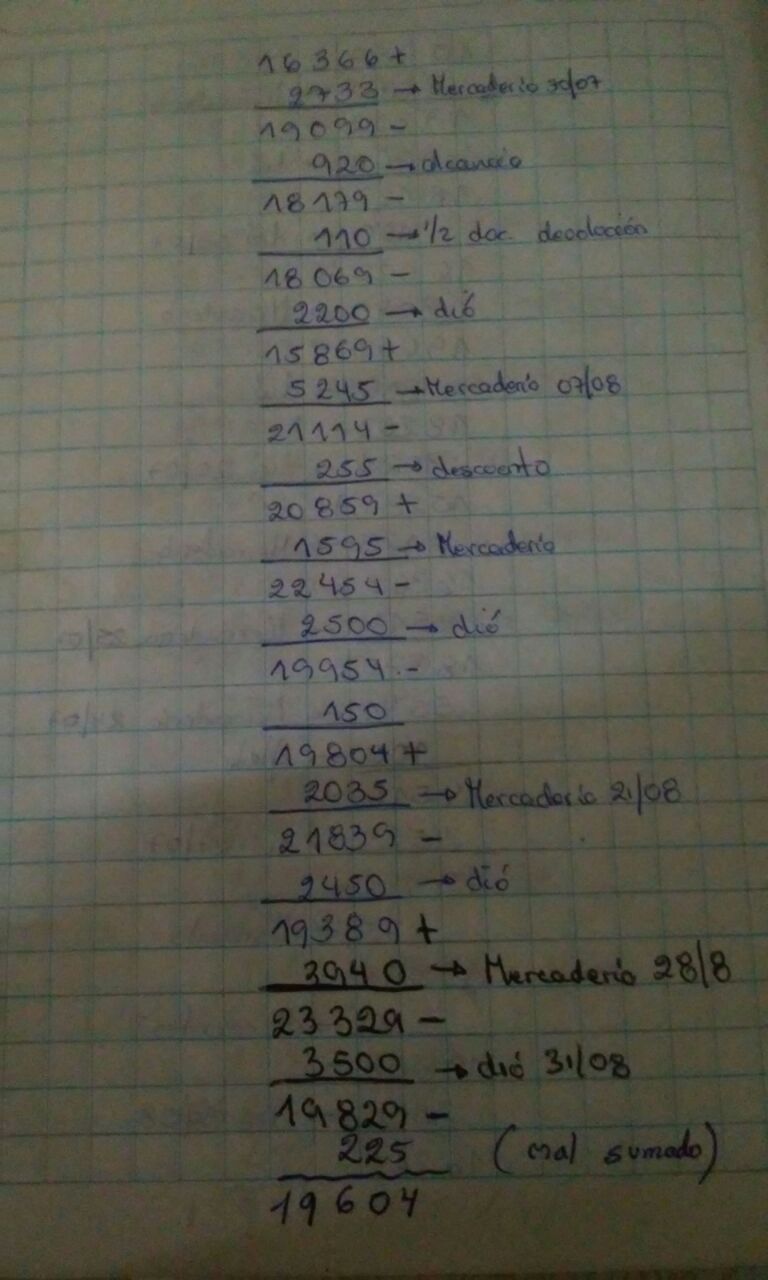 16366 +
2733 → Mercaderio 30/07
19099 -
920 → alcancia
18179 -
110 → 1/2 doc. devolución
18069 -
2200 → dió
15869 +
5245 → Mercaderio 07/08
21114 -
255 → descuento
20859 +
1595 → Mercaderio
22454 -
2500 → dió
19954 -
150
19804 +
2035 → Mercaderio 21/08
21839 -
2450 → dió
19389 +
3940 → Mercaderio 28/8
23329 -
3500 → dió 31/08
19829 -
225 (mal sumado)
19604